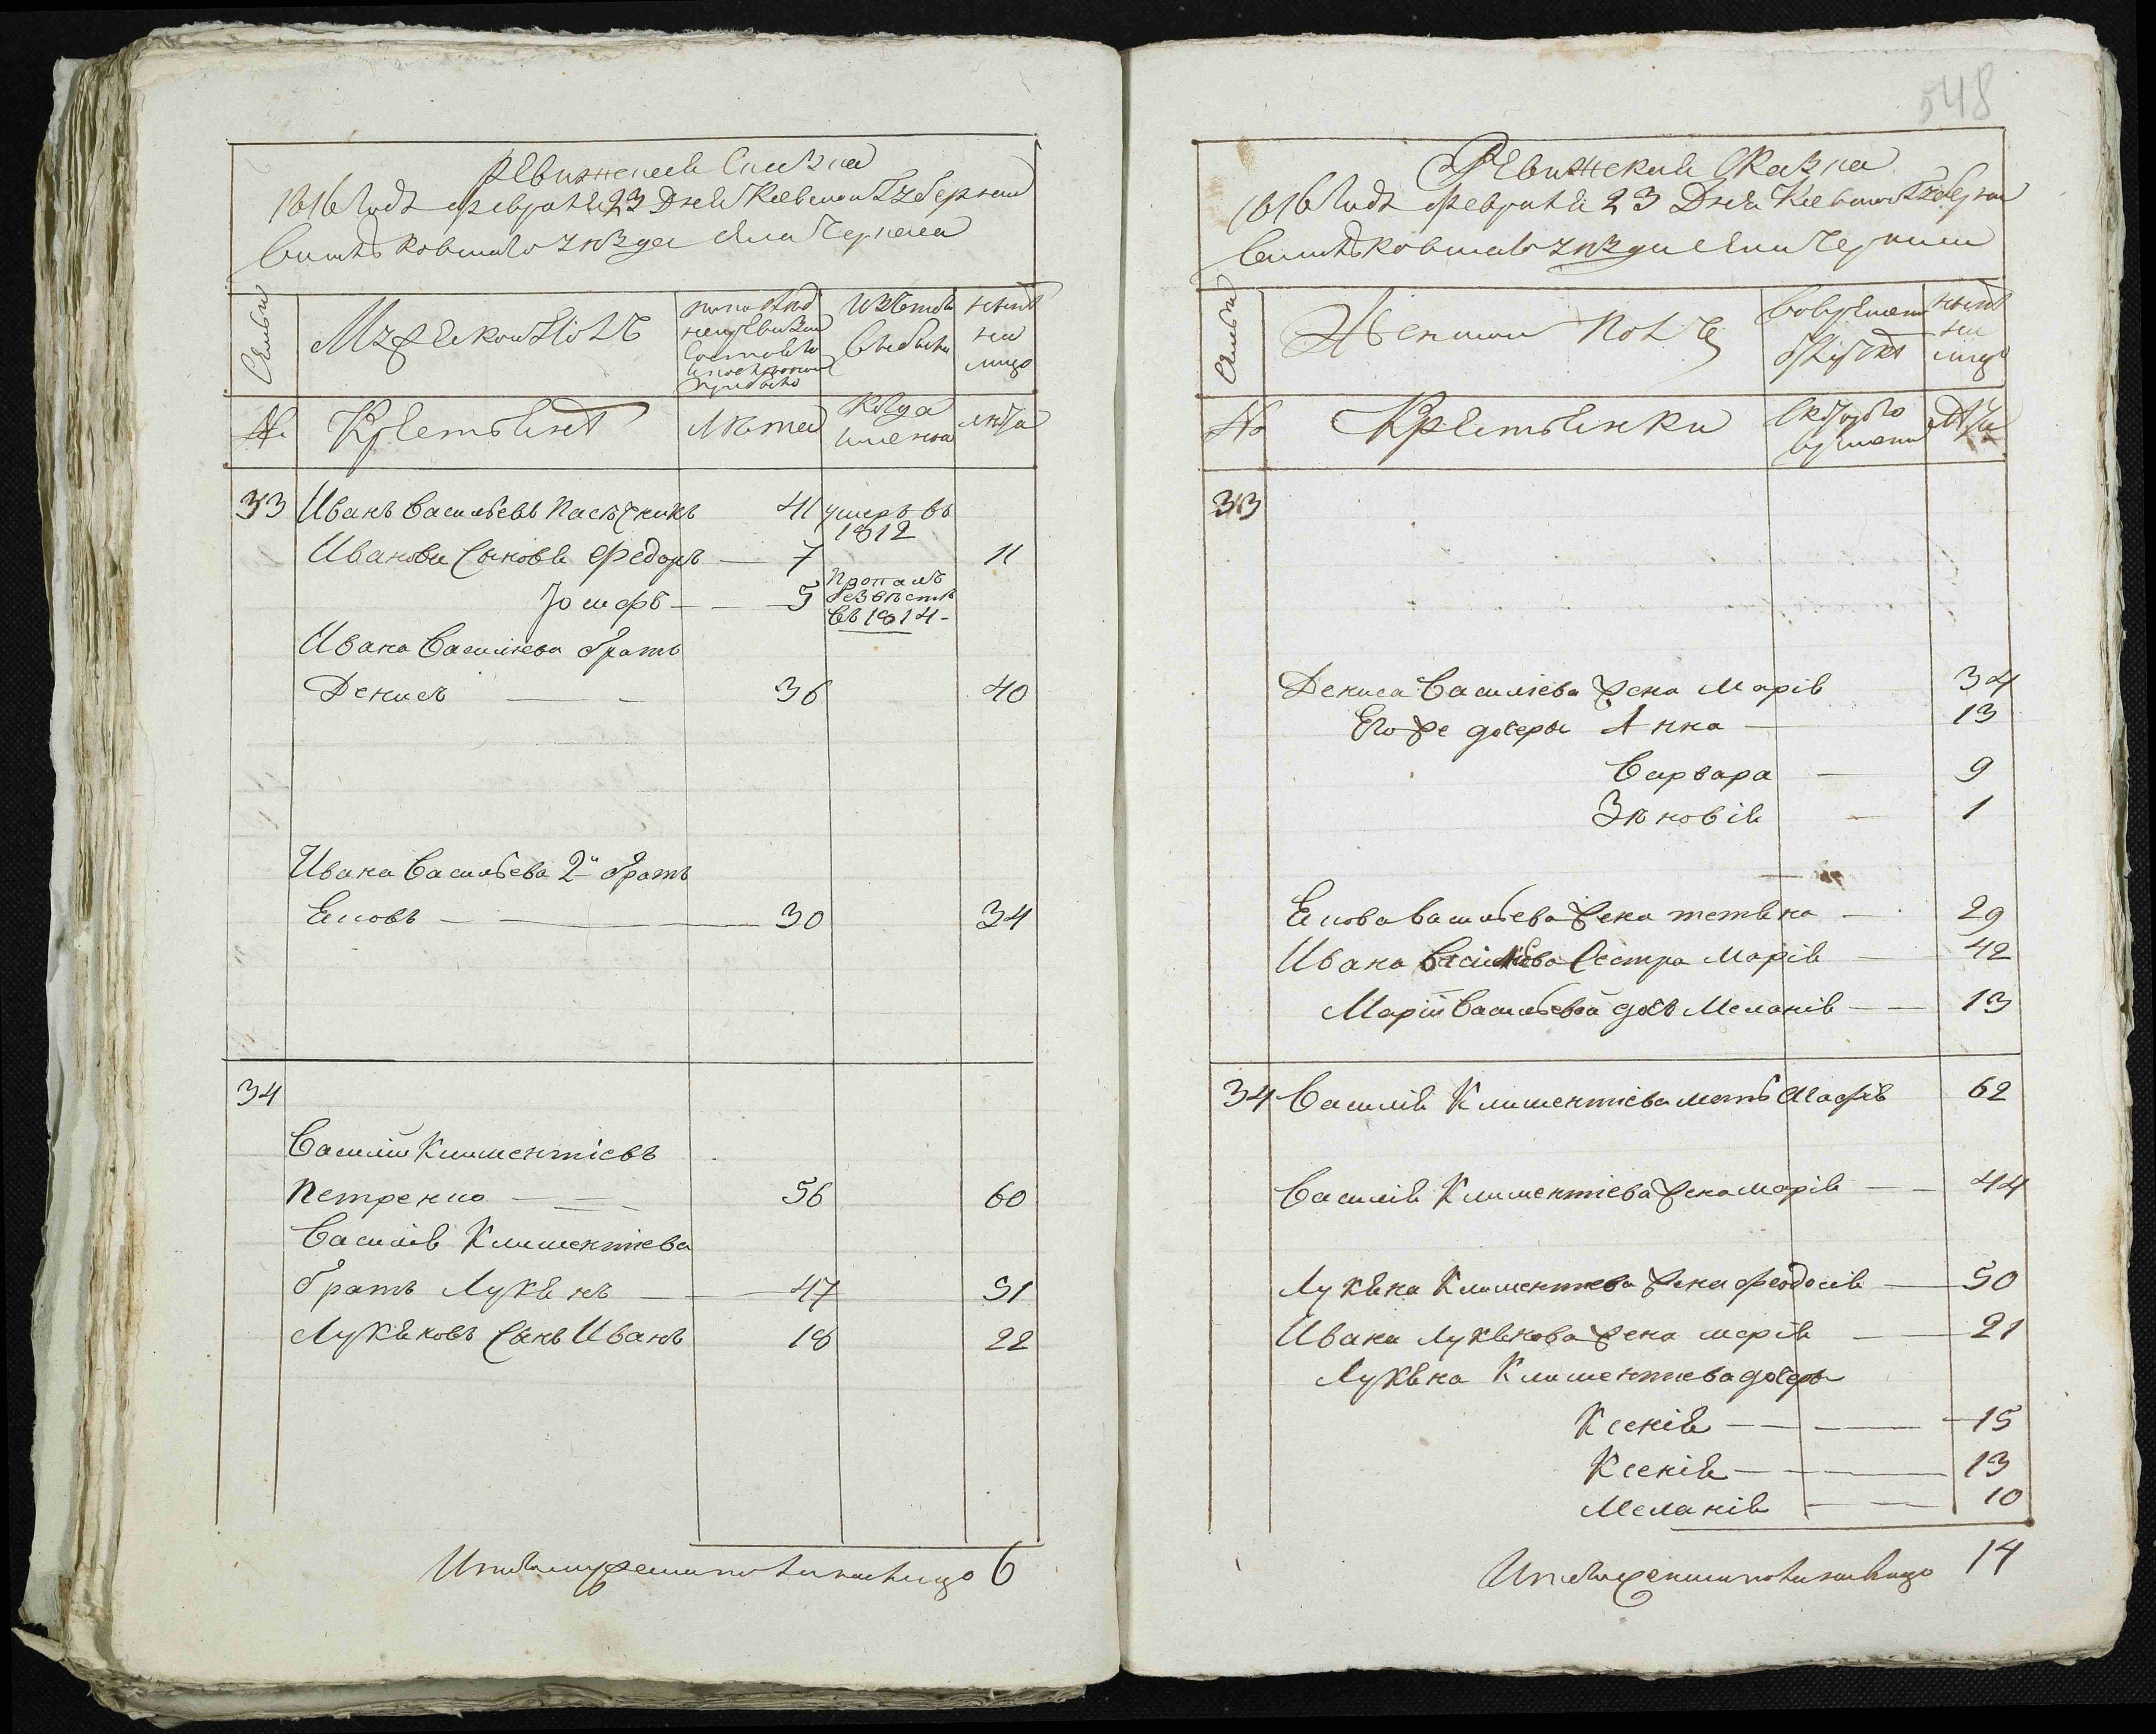 Ревижская Сказка
1816 Года февраля 23 Дня Киевской Губернии
уѣзда Села
Семьи
Мужеской полъ
по послѣд
ней ревизіи
состояло
и послѣ оной
прибыло
Изъ того
числа
выбыло
нынѣ
на
лицо
№
Крестьянѣ
Лѣта
Когда
именно
лѣта
33
Иванъ Васильевъ Пасѣчникъ
41
умеръ въ
1812
Ивановы Сыновья Федоръ
7
11
Іосифъ
5
Пропалъ
безвѣстн
въ 1814
Ивана Василіева братъ
Денисъ
36
40
Ивана Васильева 2й братъ
Еповъ
30
34
34
Василій Климентіевъ
Петренко
56
60
Василія Климентіева
братъ Лукянъ
47
51
Лукяновъ Сынъ Иванъ
18
22
Итого мужеска пола на лицо 6
548
Ревижская Сказка
1816 Года февраля 23 Дня Киевской Губернии
уѣзда Села
Семьи
Женской полъ
нынѣ
на
лицо
№
Крестьянки
Лѣта
33
Дениса Василіева жена Марія
34
Его же дочеры Анна
13
Варвара
9
Зѣновія
1
Васильева жена тетяна
29
Ивана Васильева Сестра Марія
42
Маріи Васильевой дочь Меланія
13
34
Василія Климентіева мать Агафія
62
Василія Климентіева жена марія
44
Лукяна Климентіева жена феодосія
50
Ивана Лукянова жена марія
21
Лукяна Климентіева дочеры
Ксенія
15
Ксенія
13
Меланія
10
Итого женска пола на лицо 14